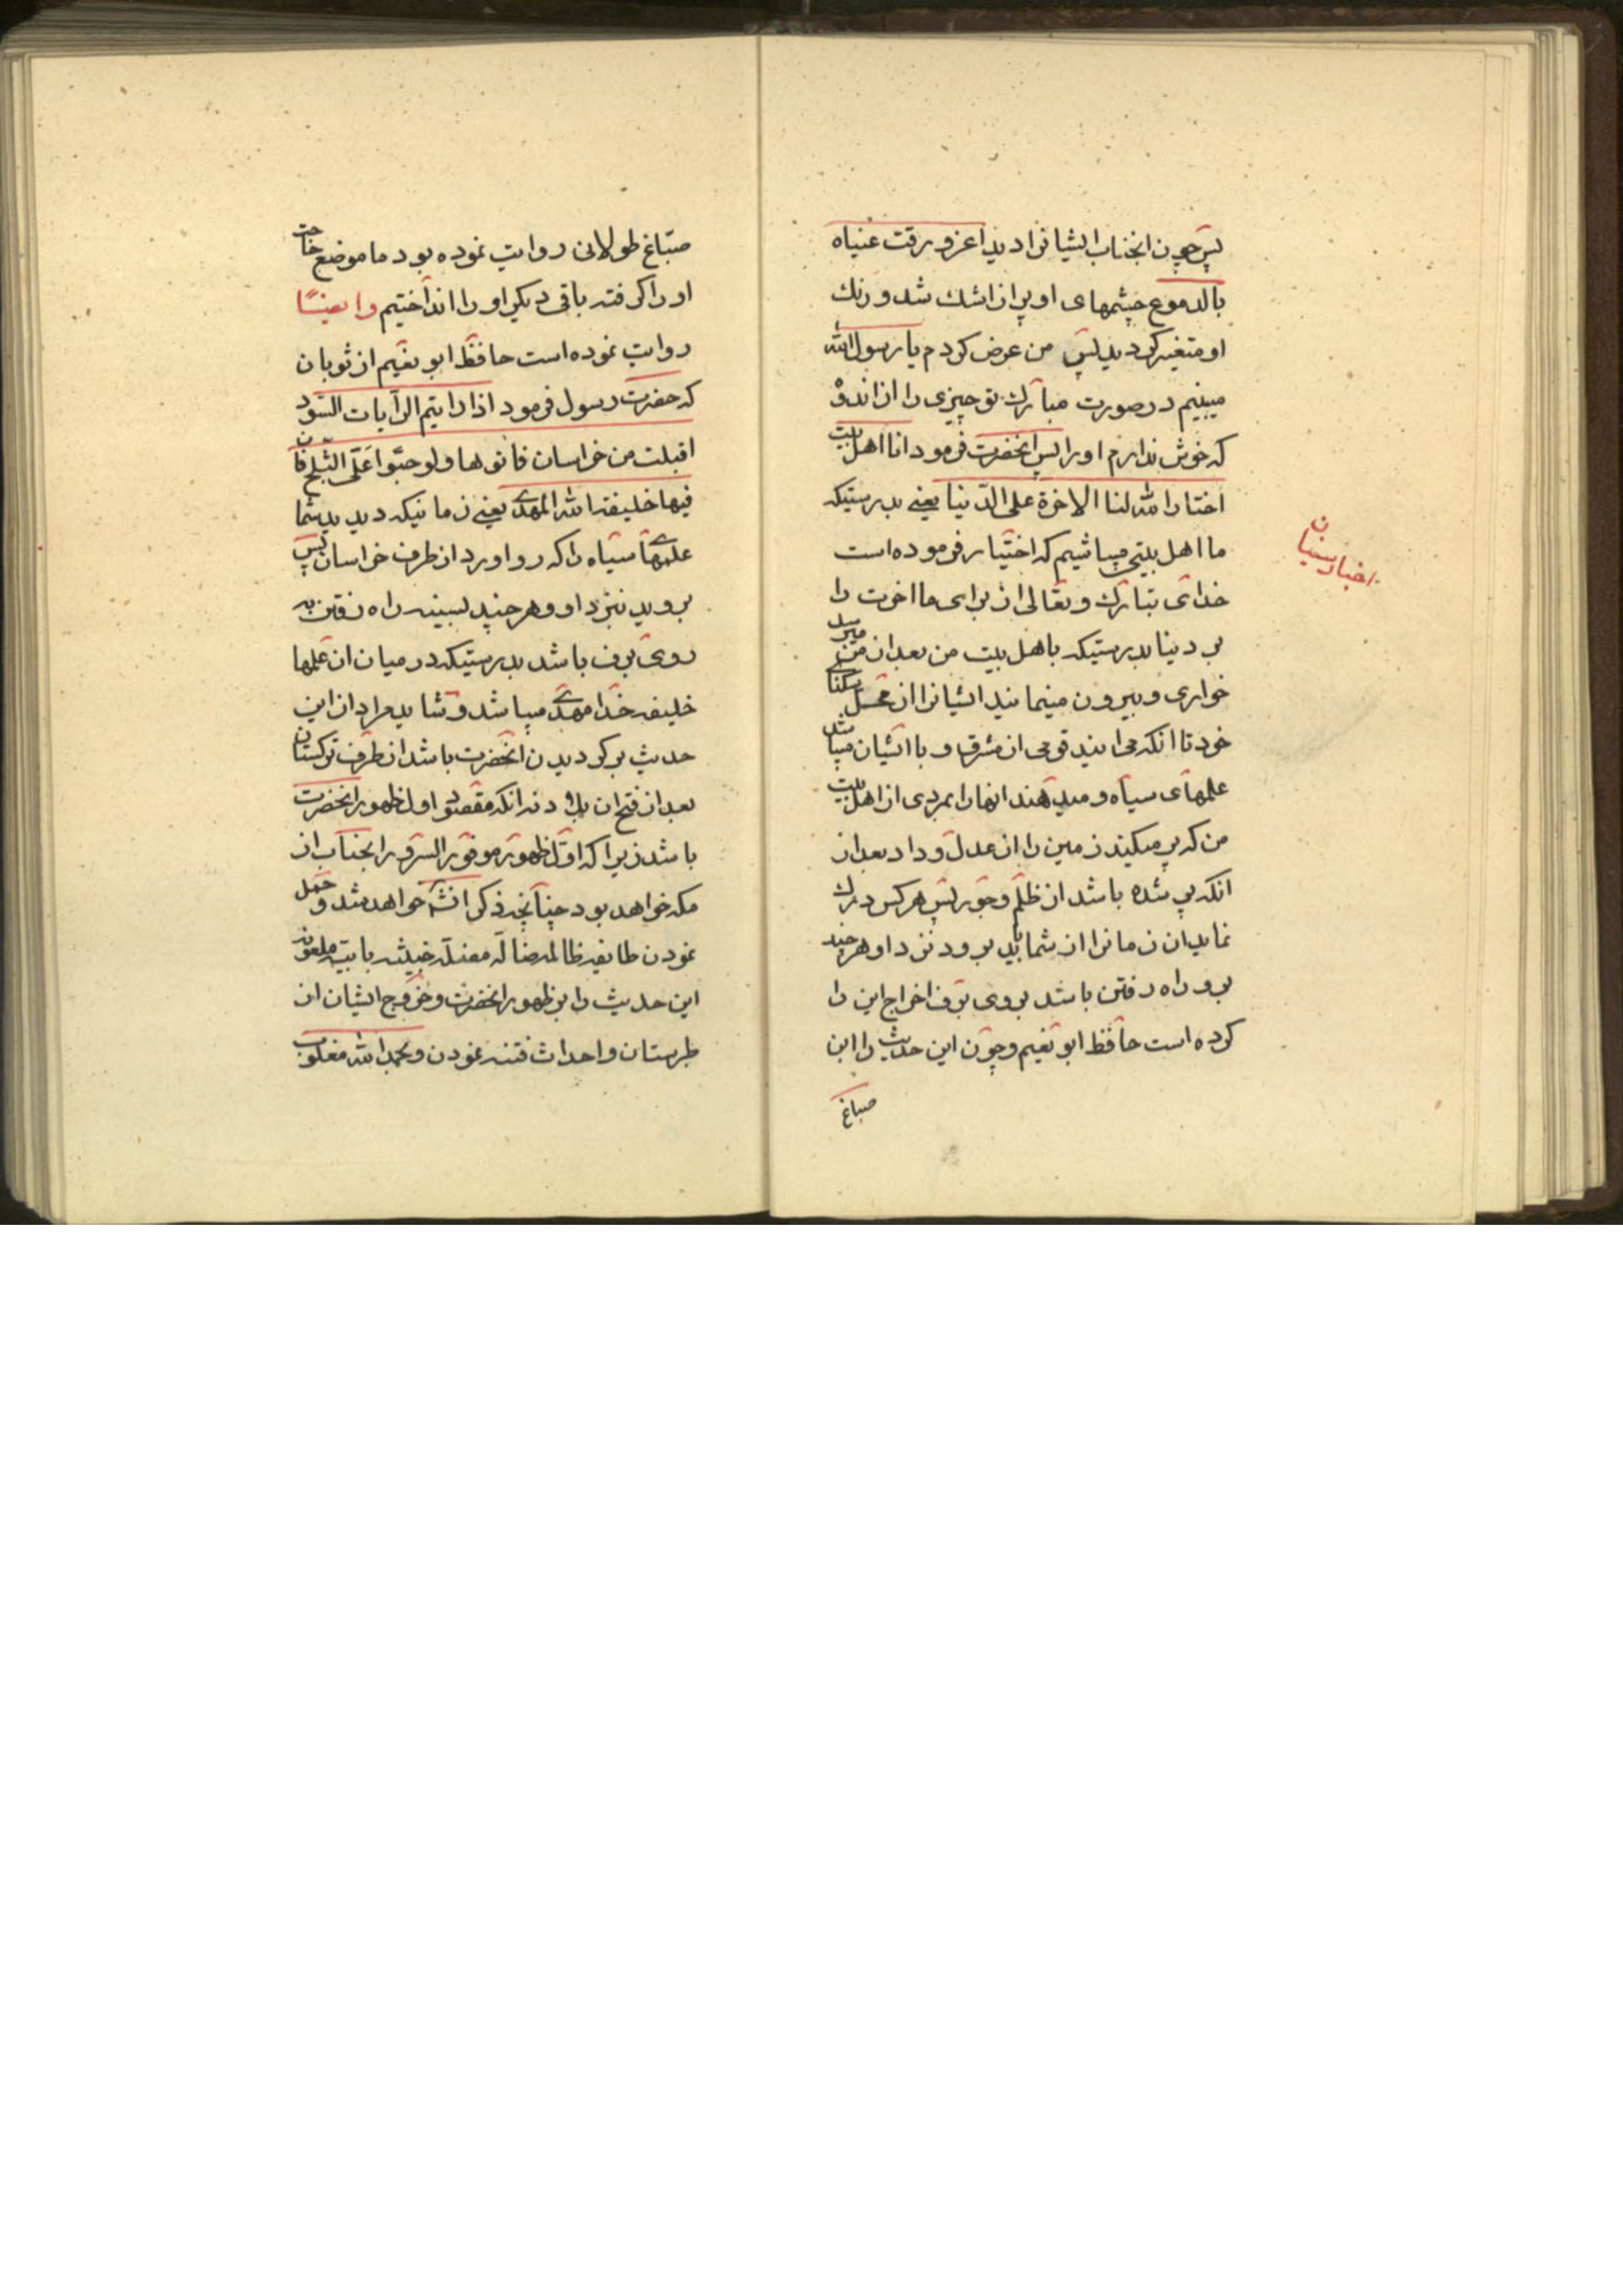 پس چون انجناب ایشانرا دید اغز و رقت عنیاه
بالدموع چشمهای او پر از اشك شد و رنك
او متغیر کردید پس من عرض کردم یا رسول الله
میبینیم در صورت مبارك تو چیزی را از اندوه
که خوش نداریم او را پس انحضرت فرمود انا اهل بیت
اختار الله لنا الاخرة علی الدّنیا یعنے بدرستیکه
ما اهل بیتی میباشیم که اختیار فرموده است
خدای تبارك و تعالی از برای ما اخرت را
بر دنیا بدرستیکه باهل بیت من بعد از من میرسد
خواری و بیرون مینمایند ایشانرا از محل سکنای
خود تا انکه می ایند قومی از مشرق و با ایشان میباشد
علمهای سیاه و میدهند انها را بمردی از اهل بیت
من که پر میکند زمین را از عدل و داد بعد از
انکه پر شده باشد از ظلم و جور پس هر کس درك
نماید ان زمانرا از شما باید برود نزد او هر چند
بر و راه رفتن باشد بروی برف اخراج این را
کرده است حافظ ابو نعیم و چون این حدیث را ابن
صباغ
اخبار سنیان
صبّاغ طولانی روایت نموده بود ما موضع حاجت
او را کرفته باقی دیکر او را انداختیم وایضًا
روایت نموده است حافظ ابو نعیم از ثوبان
که حضرت رسول فرمود اذا رایتم الرآیات السّود
اقبلت من خراسان فاتوها ولو حبّوا علی الثّلج فان
فیها خلیفة الله المهدے یعنے زمانیکه دیدید شما
علمهاے سیاه را که رو اورد از طرف خراسان پس
بروید نبزد او و هر چند بسینه راه رفتن به
روی برف باشد بدرستیکه در میان ان علمها
خلیفه خدا مهدے میباشد و شاید مراد از این
حدیث بر کردیدن انحضرت باشد از طرف ترکستان
بعد از فتح ان بلاد نه انکه مقصود اول ظهور انحضرت
باشد زیرا که اوّل ظهور موفور السرور انجناب از
مکه خواهد بود چنانچه ذکر انشٓه خواهد شد و حمل
نمودن طایفه ظالمه ضاله مضلّه خبیثه بابیّه ملعونه
این حدیث را بر ظهور انحضرت و خروج ایشان از
طبرستان و احداث فتنه نمودن و بحمد الله مغلوب